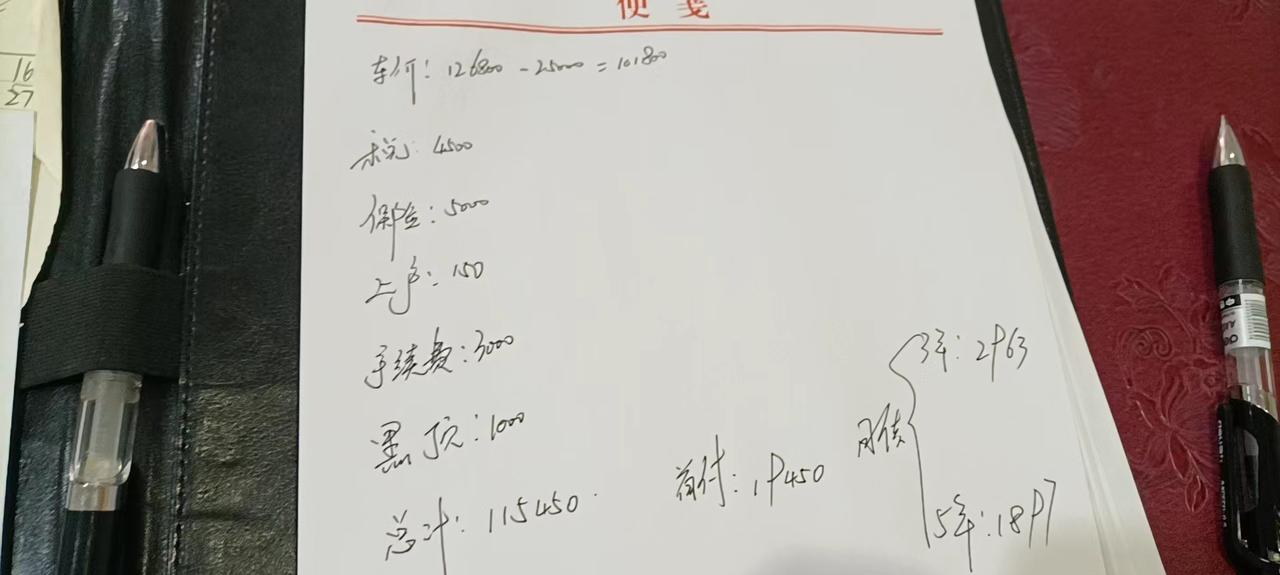 便笺
16
27
车价: 126800 - 25000 = 101800
税: 4500
保险: 5000
上户: 150
手续费: 3000
黑顶: 1000
总计: 115450
首付: 19450
月供
3年: 2963
5年: 1897